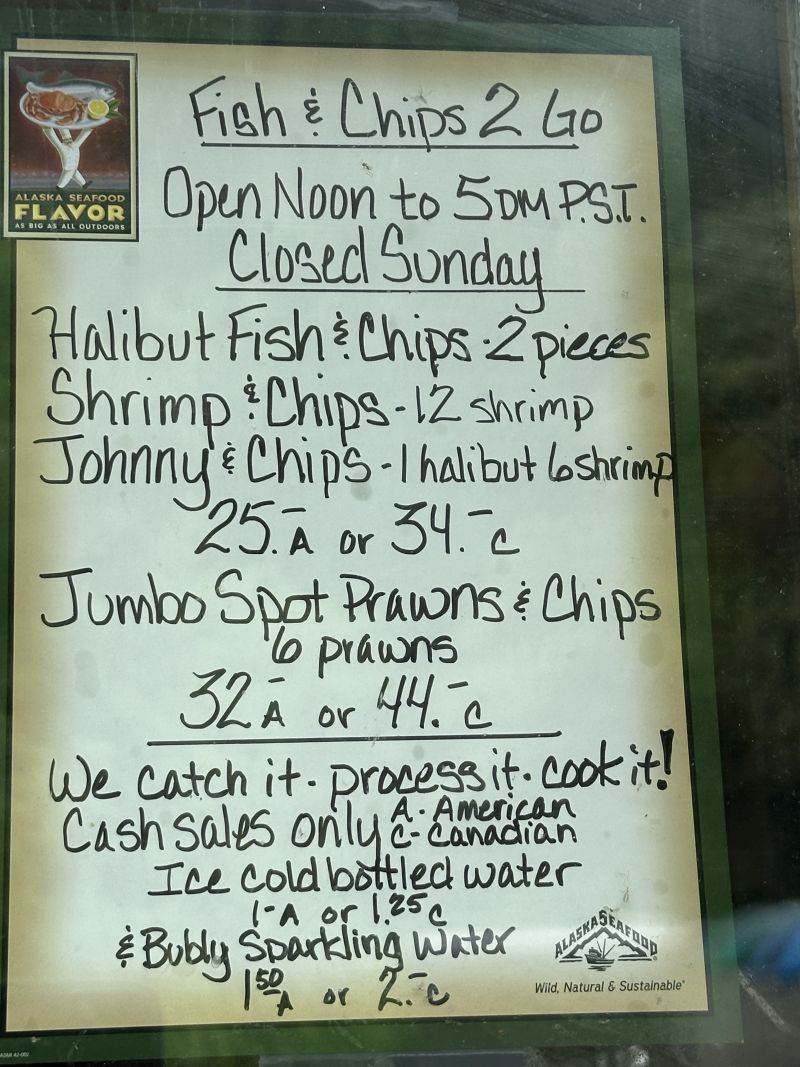 Fish & Chips 2 Go
ALASKA SEAFOOD
FLAVOR
AS BIG AS ALL OUTDOORS
Open Noon to 5PM P.S.T.
Closed Sunday
Halibut Fish & Chips - 2 pieces
Shrimp & Chips - 12 shrimp
Johnny & Chips - 1 halibut 6 shrimp
25.- A or 34.- C
Jumbo Spot Prawns & Chips
6 prawns
32- A or 44.- C
We catch it - process it - cook it!
Cash sales only A - American
C - Canadian
Ice cold bottled water
1- A or 1.25 C
& Bubly Sparkling Water
1 50 A or 2.- C
ALASKA SEAFOOD®
Wild, Natural & Sustainable®